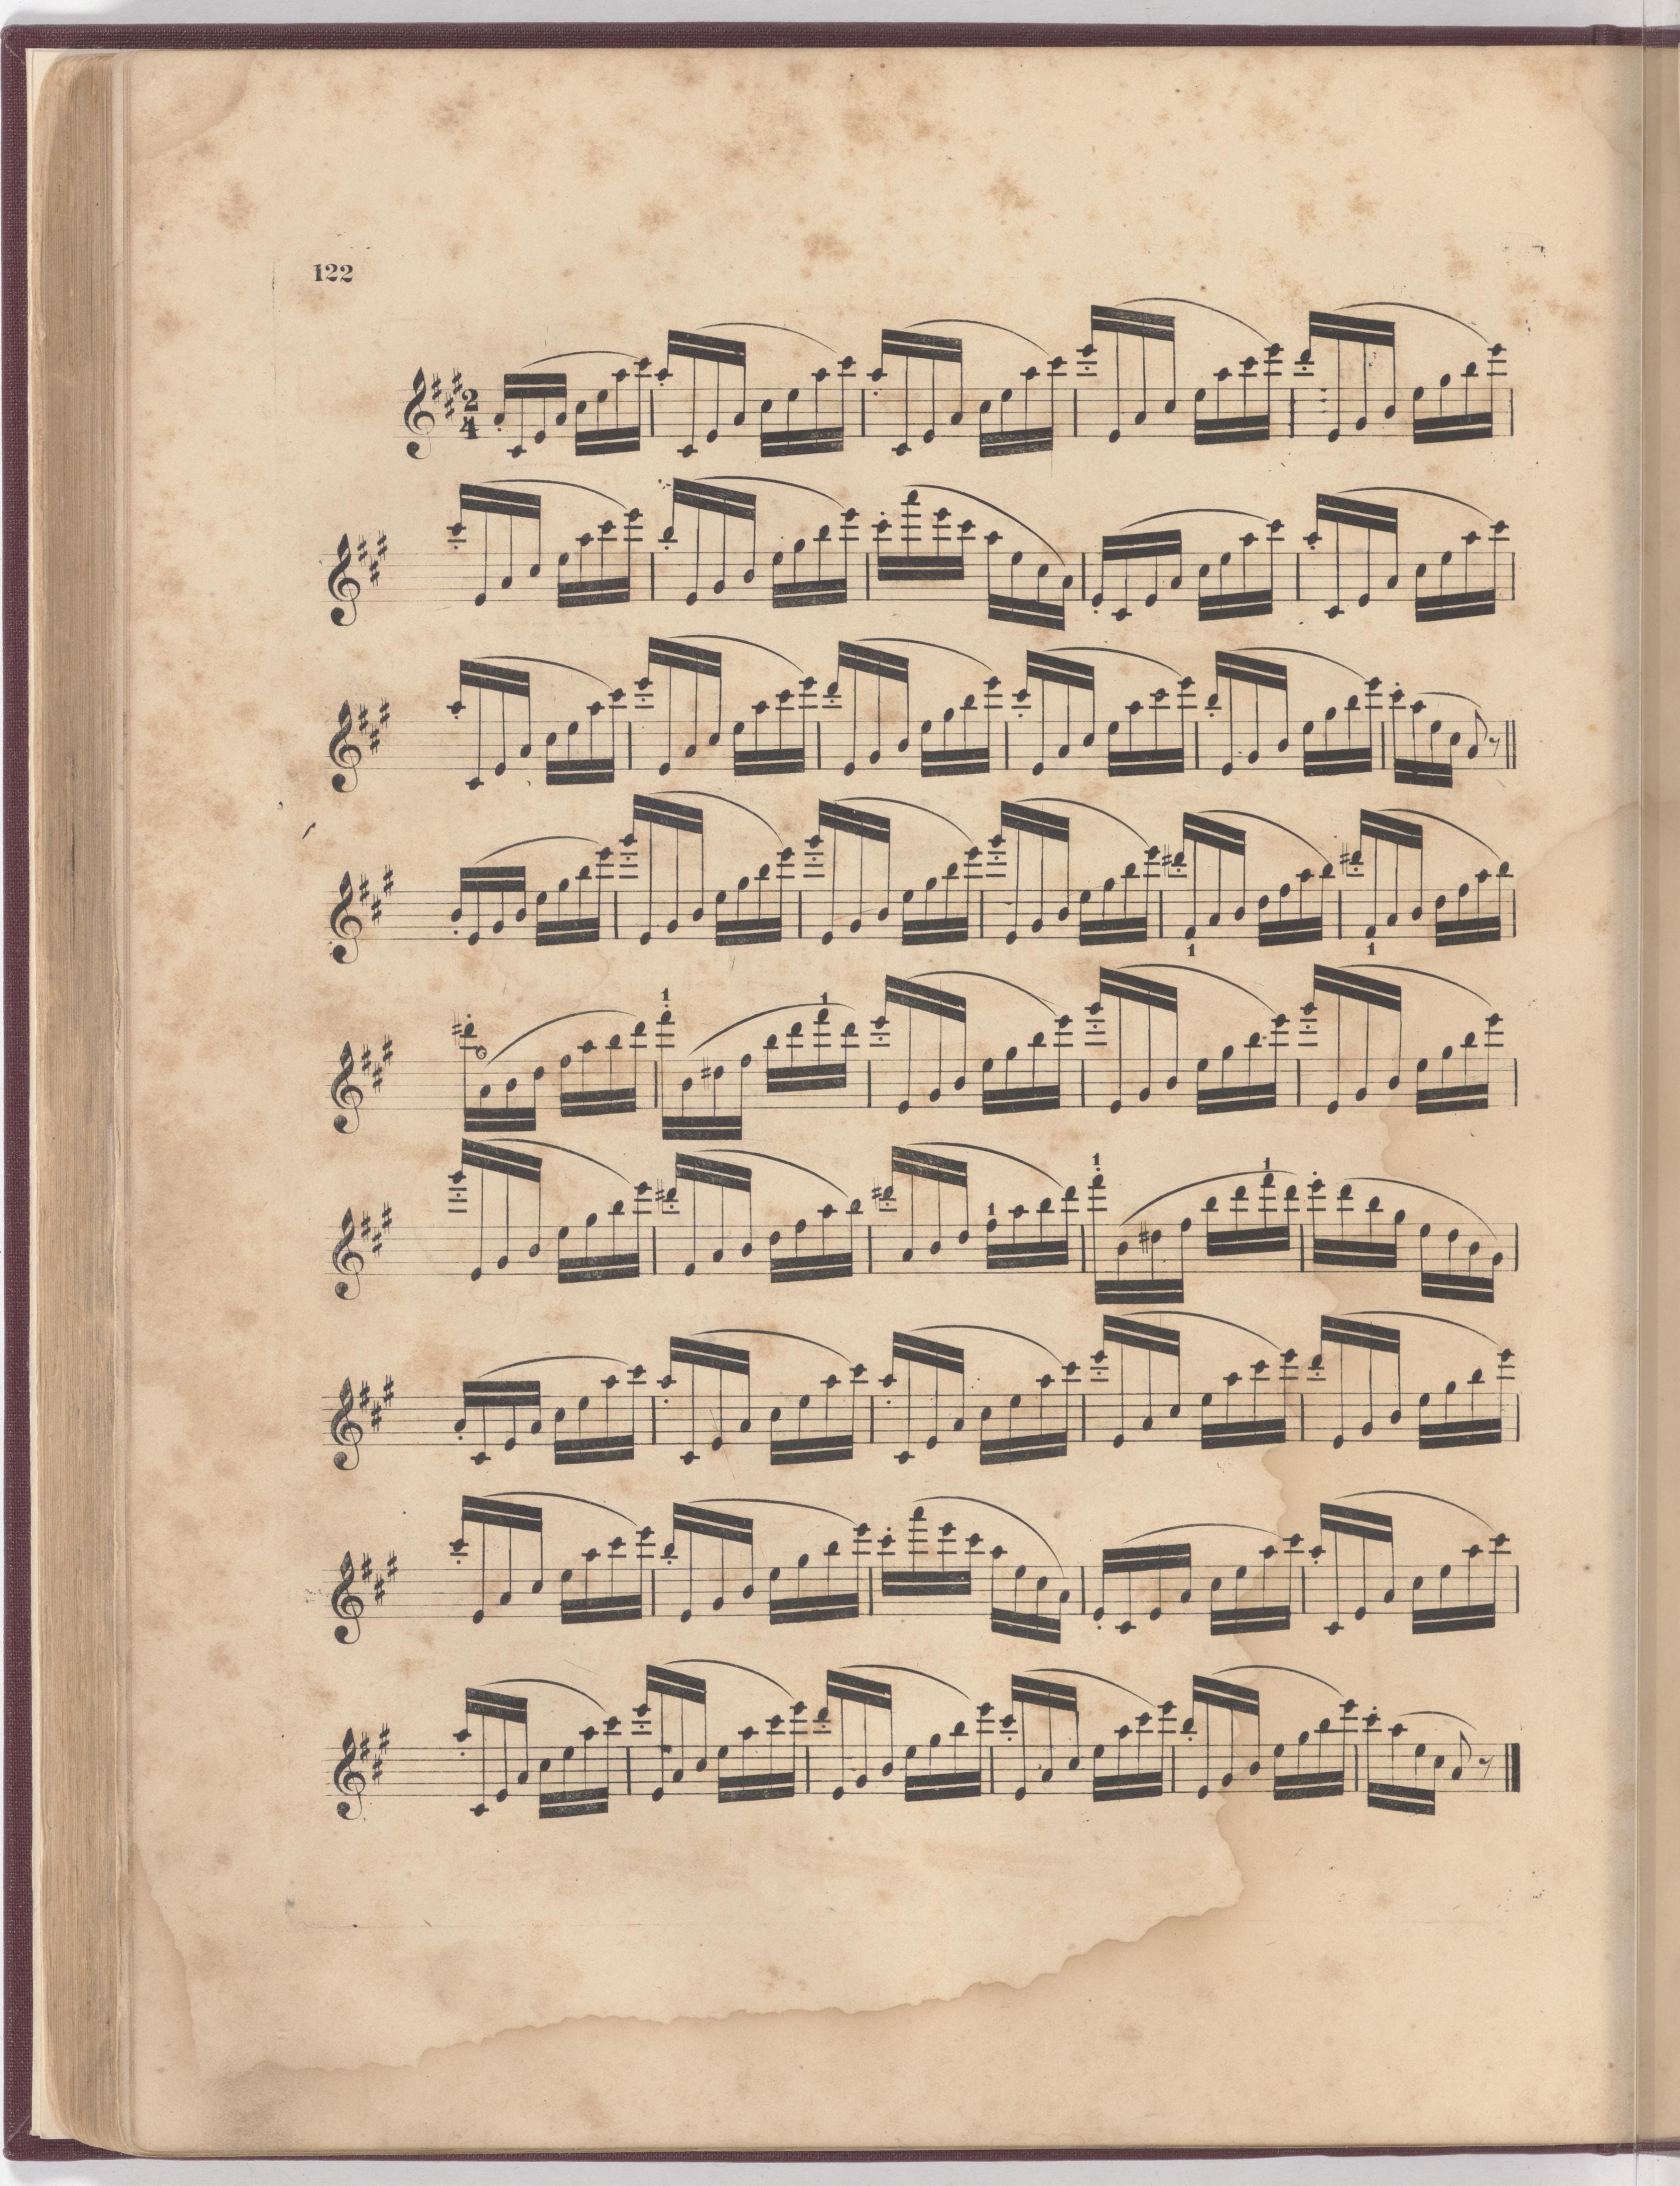 122
2
4
1 1
1 1
1 1 1